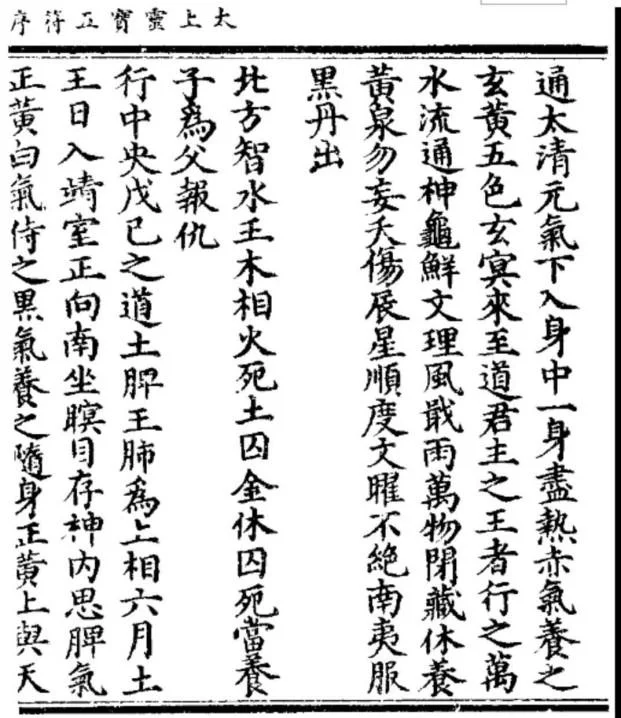 太上靈寶五符序
通太清元氣下入身中一身盡熱赤氣養之
玄黃五色玄冥來至道君主之王者行之萬
水流通神龜鮮文理風戢雨萬物閉藏休養
黃泉勿妄夭傷展星順度文曜不絕南夷服
黑丹出
北方智水王木相火死土囚金休囚死當養
子爲父報仇
行中央戊己之道土脾王肺爲上相六月土
王日入靖室正向南坐瞑目存神內思脾氣
正黃白氣侍之黑氣養之隨身正黃上與天